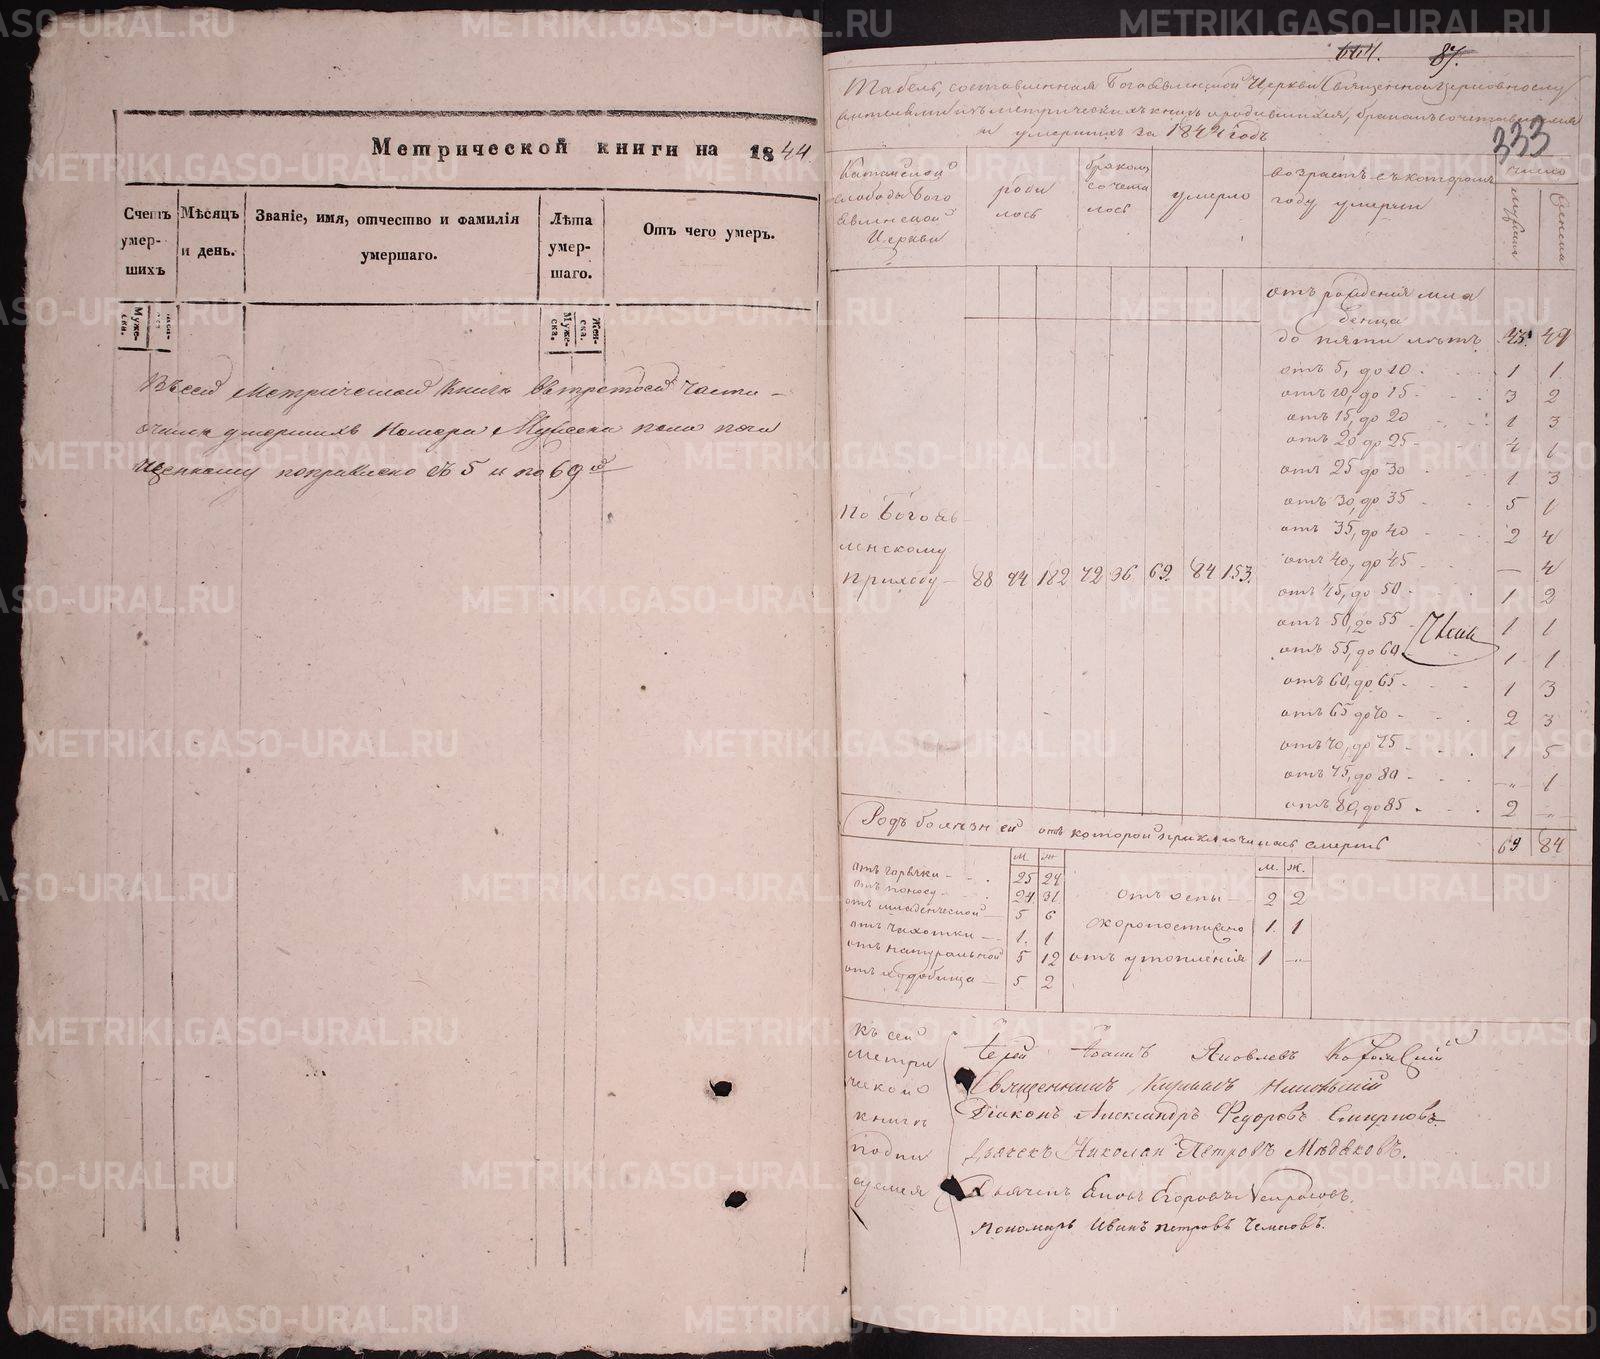 Метрической книги на 1844.
Счетъ умер- шихъ
Мѣсяцъ и день.
Званіе, имя, отчество и фамилія умершаго.
Лѣта умер- шаго.
Отъ чего умеръ.
Муже- ска.
Муже- ска.
Жен- ска.
Въ сей Метрической Книгѣ въ третьей части
умершихъ Номера Мужеска пола
поправлено съ 5 и по 69й
664. 87.
333
Табель, составленная Богоявленской Церкви Священноцерковнослу
жителями изъ метрическихъ книгъ о родившихся, бракомъ сочетавшихся
и умершихъ за 1844 годъ
Катайской слободы Бого явленской Церкви
роди лось
бракомъ сочета лось
умерло
возрастъ въ которомъ году умерли
число
мужеска
женска
отъ рожденія мла
денца
до пяти лѣтъ 43 49
отъ 5, до 10 1 1
отъ 10, до 15 3 2
отъ 15, до 20 1 3
отъ 20 до 25 4 1
отъ 25 до 30 1 3
отъ 30, до 35 5 1
отъ 35, до 40 2 4
отъ 40, до 45 — 4
отъ 45, до 50 1 2
отъ 50, до 55 1 1
отъ 55, до 60 1 1
отъ 60, до 65 1 3
отъ 65 до 70 2 3
отъ 70, до 75 1 5
отъ 75, до 80 -„- 1
отъ 80, до 85 2 -„-
69 84
По Богояв
ленскому
приходу — 88 94 182 72 36 69 84 153.
Родъ болѣзней отъ которой приключилась смерть
м. ж. м. ж.
отъ горячки 25 27
отъ поносу 24 31
отъ младенческой 5 6
отъ чахотки 1. 1
отъ натуральной 5 12
5 2
отъ оспы 2 2
скоропостижно 1. 1
отъ утопленія 1 -„-
Къ сей
метри
ческой
книгѣ
подпи
суемся
Іерей Іоаннъ Яковлевъ
Священникъ Никольскій
Діаконъ Александръ Федоровъ Смирновъ
Дьячекъ Николай Петровъ Медяковъ.
Дьячекъ Егоровъ Некрасовъ.
Пономарь Иванъ Петровъ
METRIKI.GASO-URAL.RU